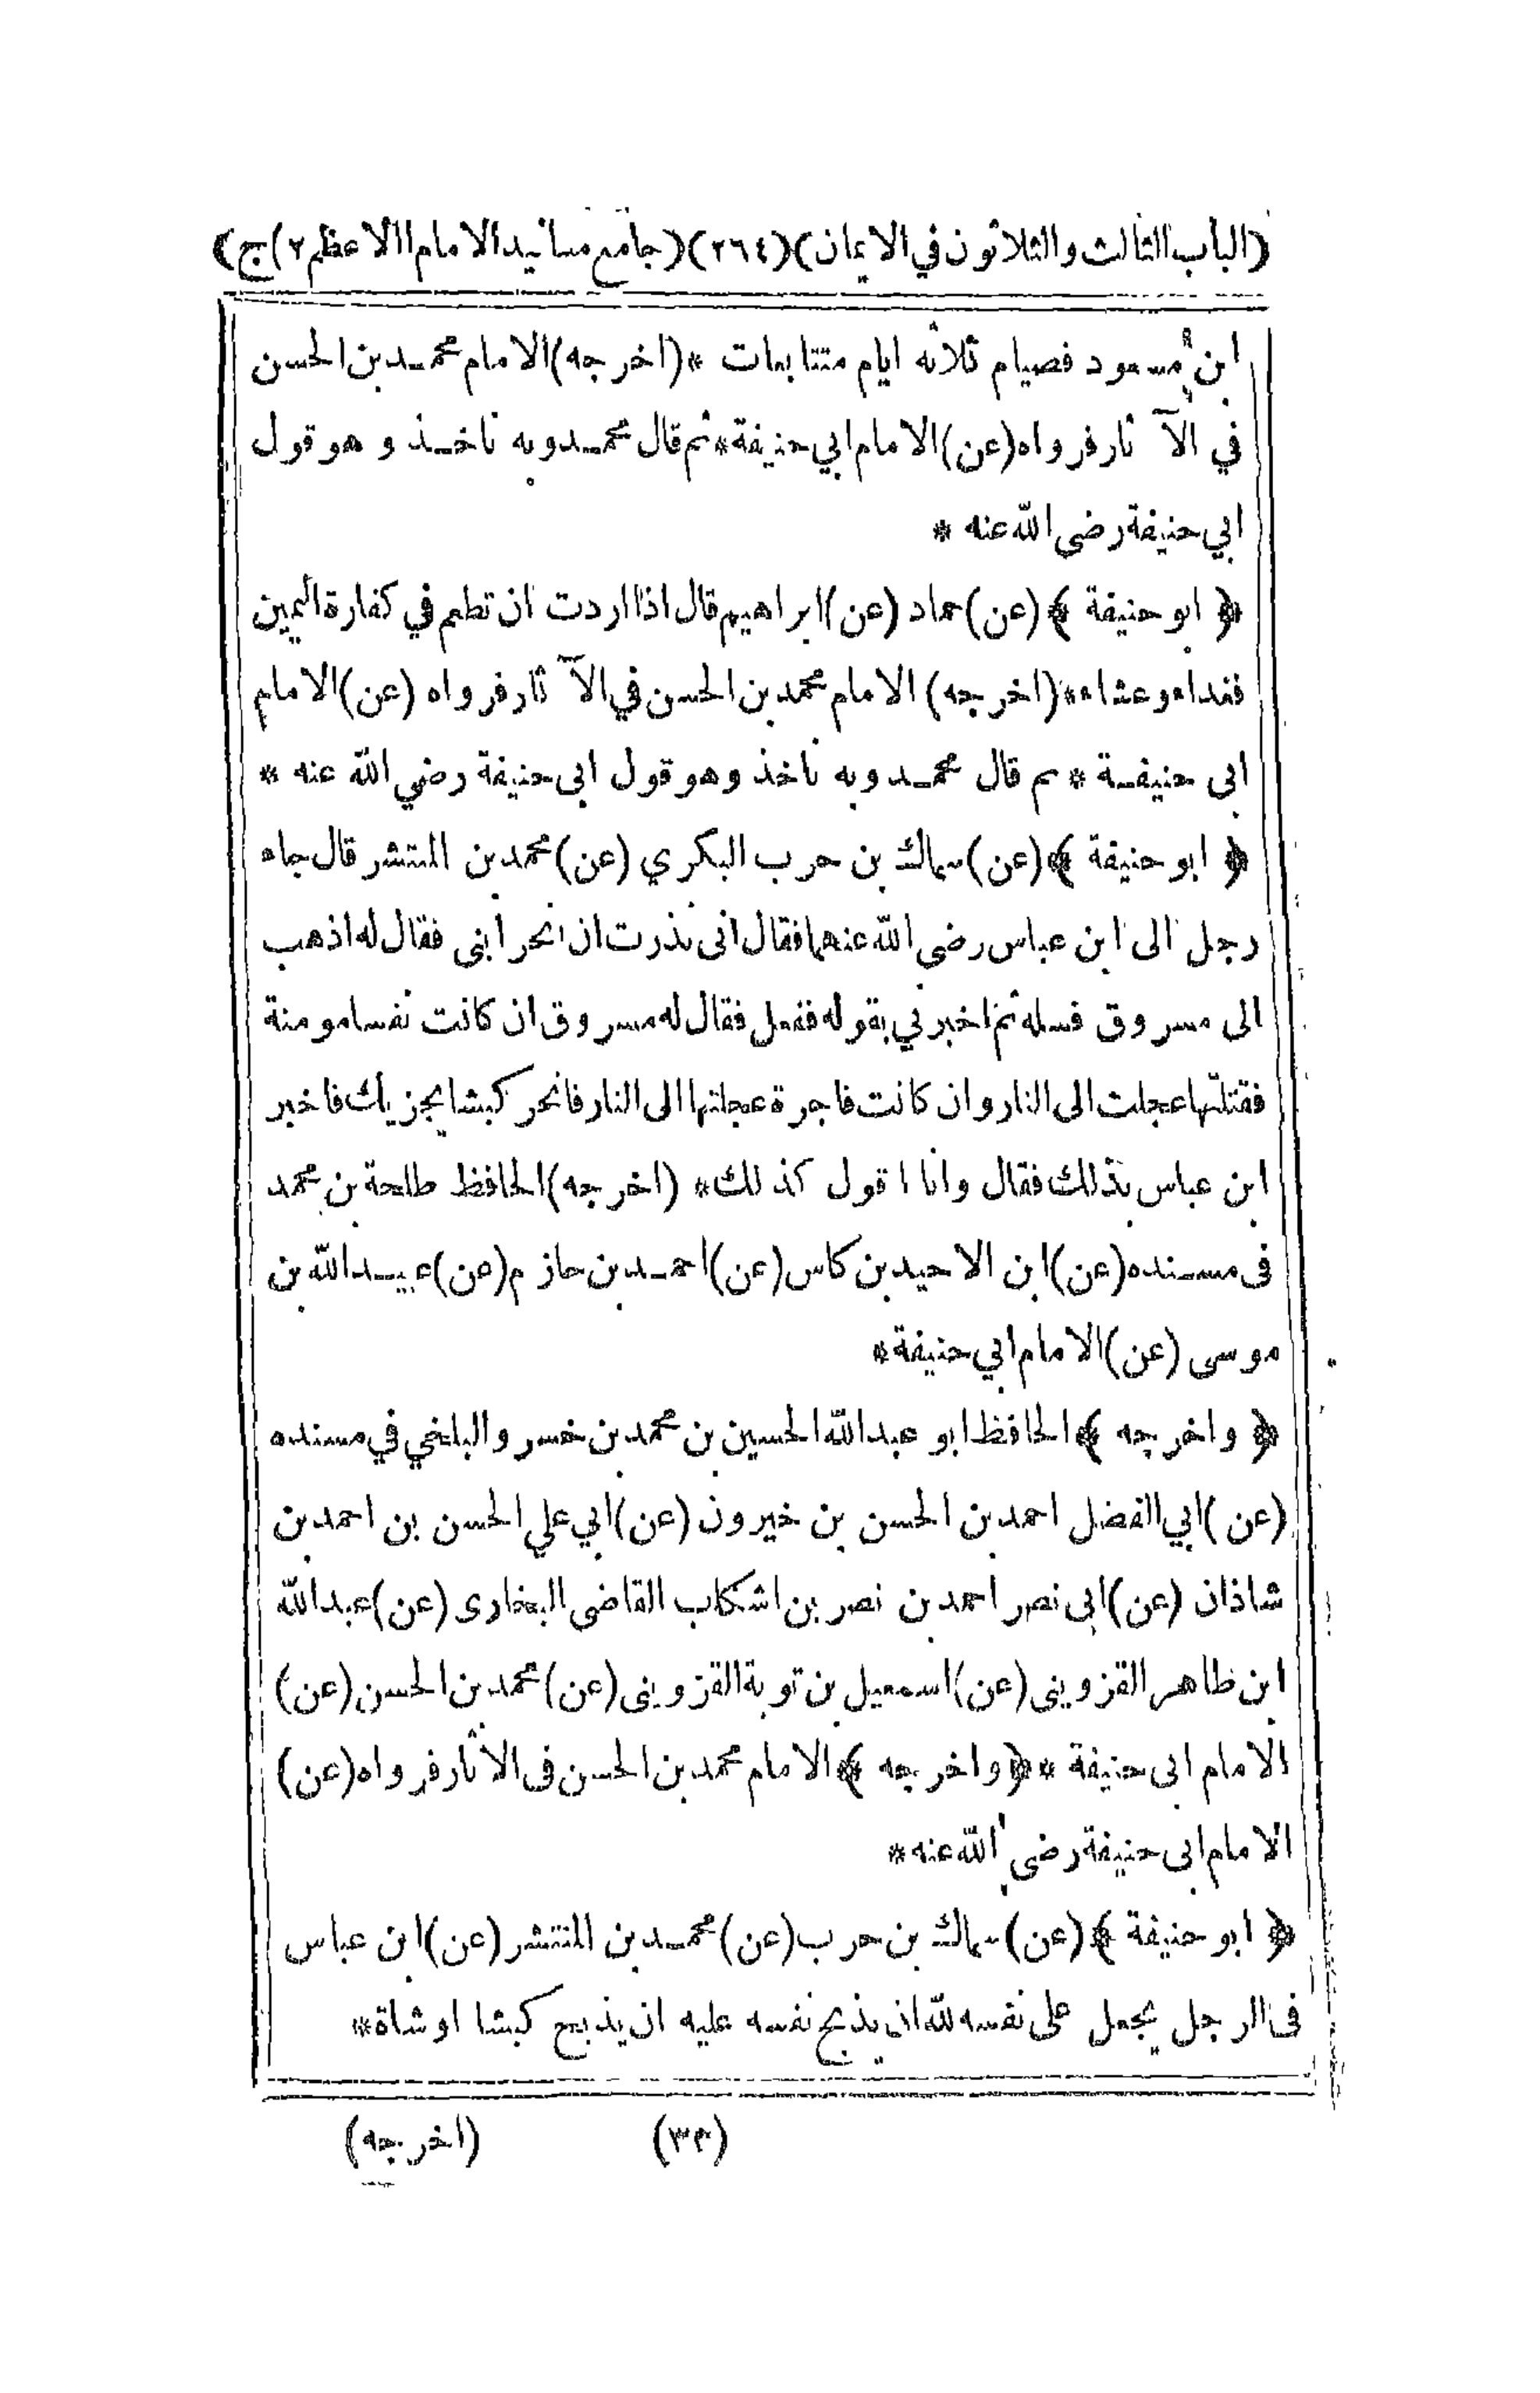 (الباب الثالث والثلاثون في الايمان) (٢٦٤) (جامع مسانيد الامام االاعظم ٢)ج)
ابن مسعود فصيام ثلاثه ايام متتابعات * (اخرجه) الامام محمد بن الحسن
في الآثار فرواه (عن) الامام ابي حنيفة * ثم قال محمد وبه ناخذ و هو قول
ابي حنيفة رضى الله عنه *
﴿ ابو حنيفة ﴾ (عن) حماد (عن) ابراهيم قال اذا اردت ان تطعم في كفارة اليمين
فغداه وعشاه * (اخرجه) الامام محمد بن الحسن في الآثار فرواه (عن) الامام
ابى حنيفة * ثم قال محمد وبه ناخذ وهو قول ابى حنيفة رضي الله عنه *
﴿ ابو حنيفة ﴾ (عن) سماك بن حرب البكري (عن) محمد بن المنتشر قال جاء
رجل الى ابن عباس رضى الله عنهما فقال انى نذرت ان انحر ابنى فقال له اذهب
الى مسروق فسله ثم اخبرني بقوله ففعل فقال له مسروق ان كانت نفسا مومنة
فقتلتها عجلت الى النار وان كانت فاجرة عجلتها الى النار فانحر كبشا يجزيك فاخبر
ابن عباس بذلك فقال وانا اقول كذلك * (اخرجه) الحافظ طلحة بن محمد
فى مسنده (عن) ابن الاحيد بن كاس (عن) احمد بن حازم (عن) عبيد الله بن
موسى (عن) الامام ابي حنيفة *
﴿ واخرجه ﴾ الحافظ ابو عبد الله الحسين بن محمد بن خسرو البلخي في مسنده
(عن) ابي الفضل احمد بن الحسن بن خيرون (عن) ابي علي الحسن بن احمد بن
شاذان (عن) ابى نصر احمد بن نصر بن اشكاب القاضى البخارى (عن) عبد الله
ابن طاهر القزوينى (عن) اسمعيل بن توبة القزوينى (عن) محمد بن الحسن (عن)
الامام ابى حنيفة * ﴿ واخرجه ﴾ الامام محمد بن الحسن فى الاثار فرواه (عن)
الامام ابى حنيفة رضى الله عنه *
﴿ ابو حنيفة ﴾ (عن) سماك بن حرب (عن) محمد بن المنتشر (عن) ابن عباس
فى الرجل يجعل على نفسه لله ان يذبح نفسه عليه ان يذبح كبشا او شاة *
(٣٣) (اخرجه)